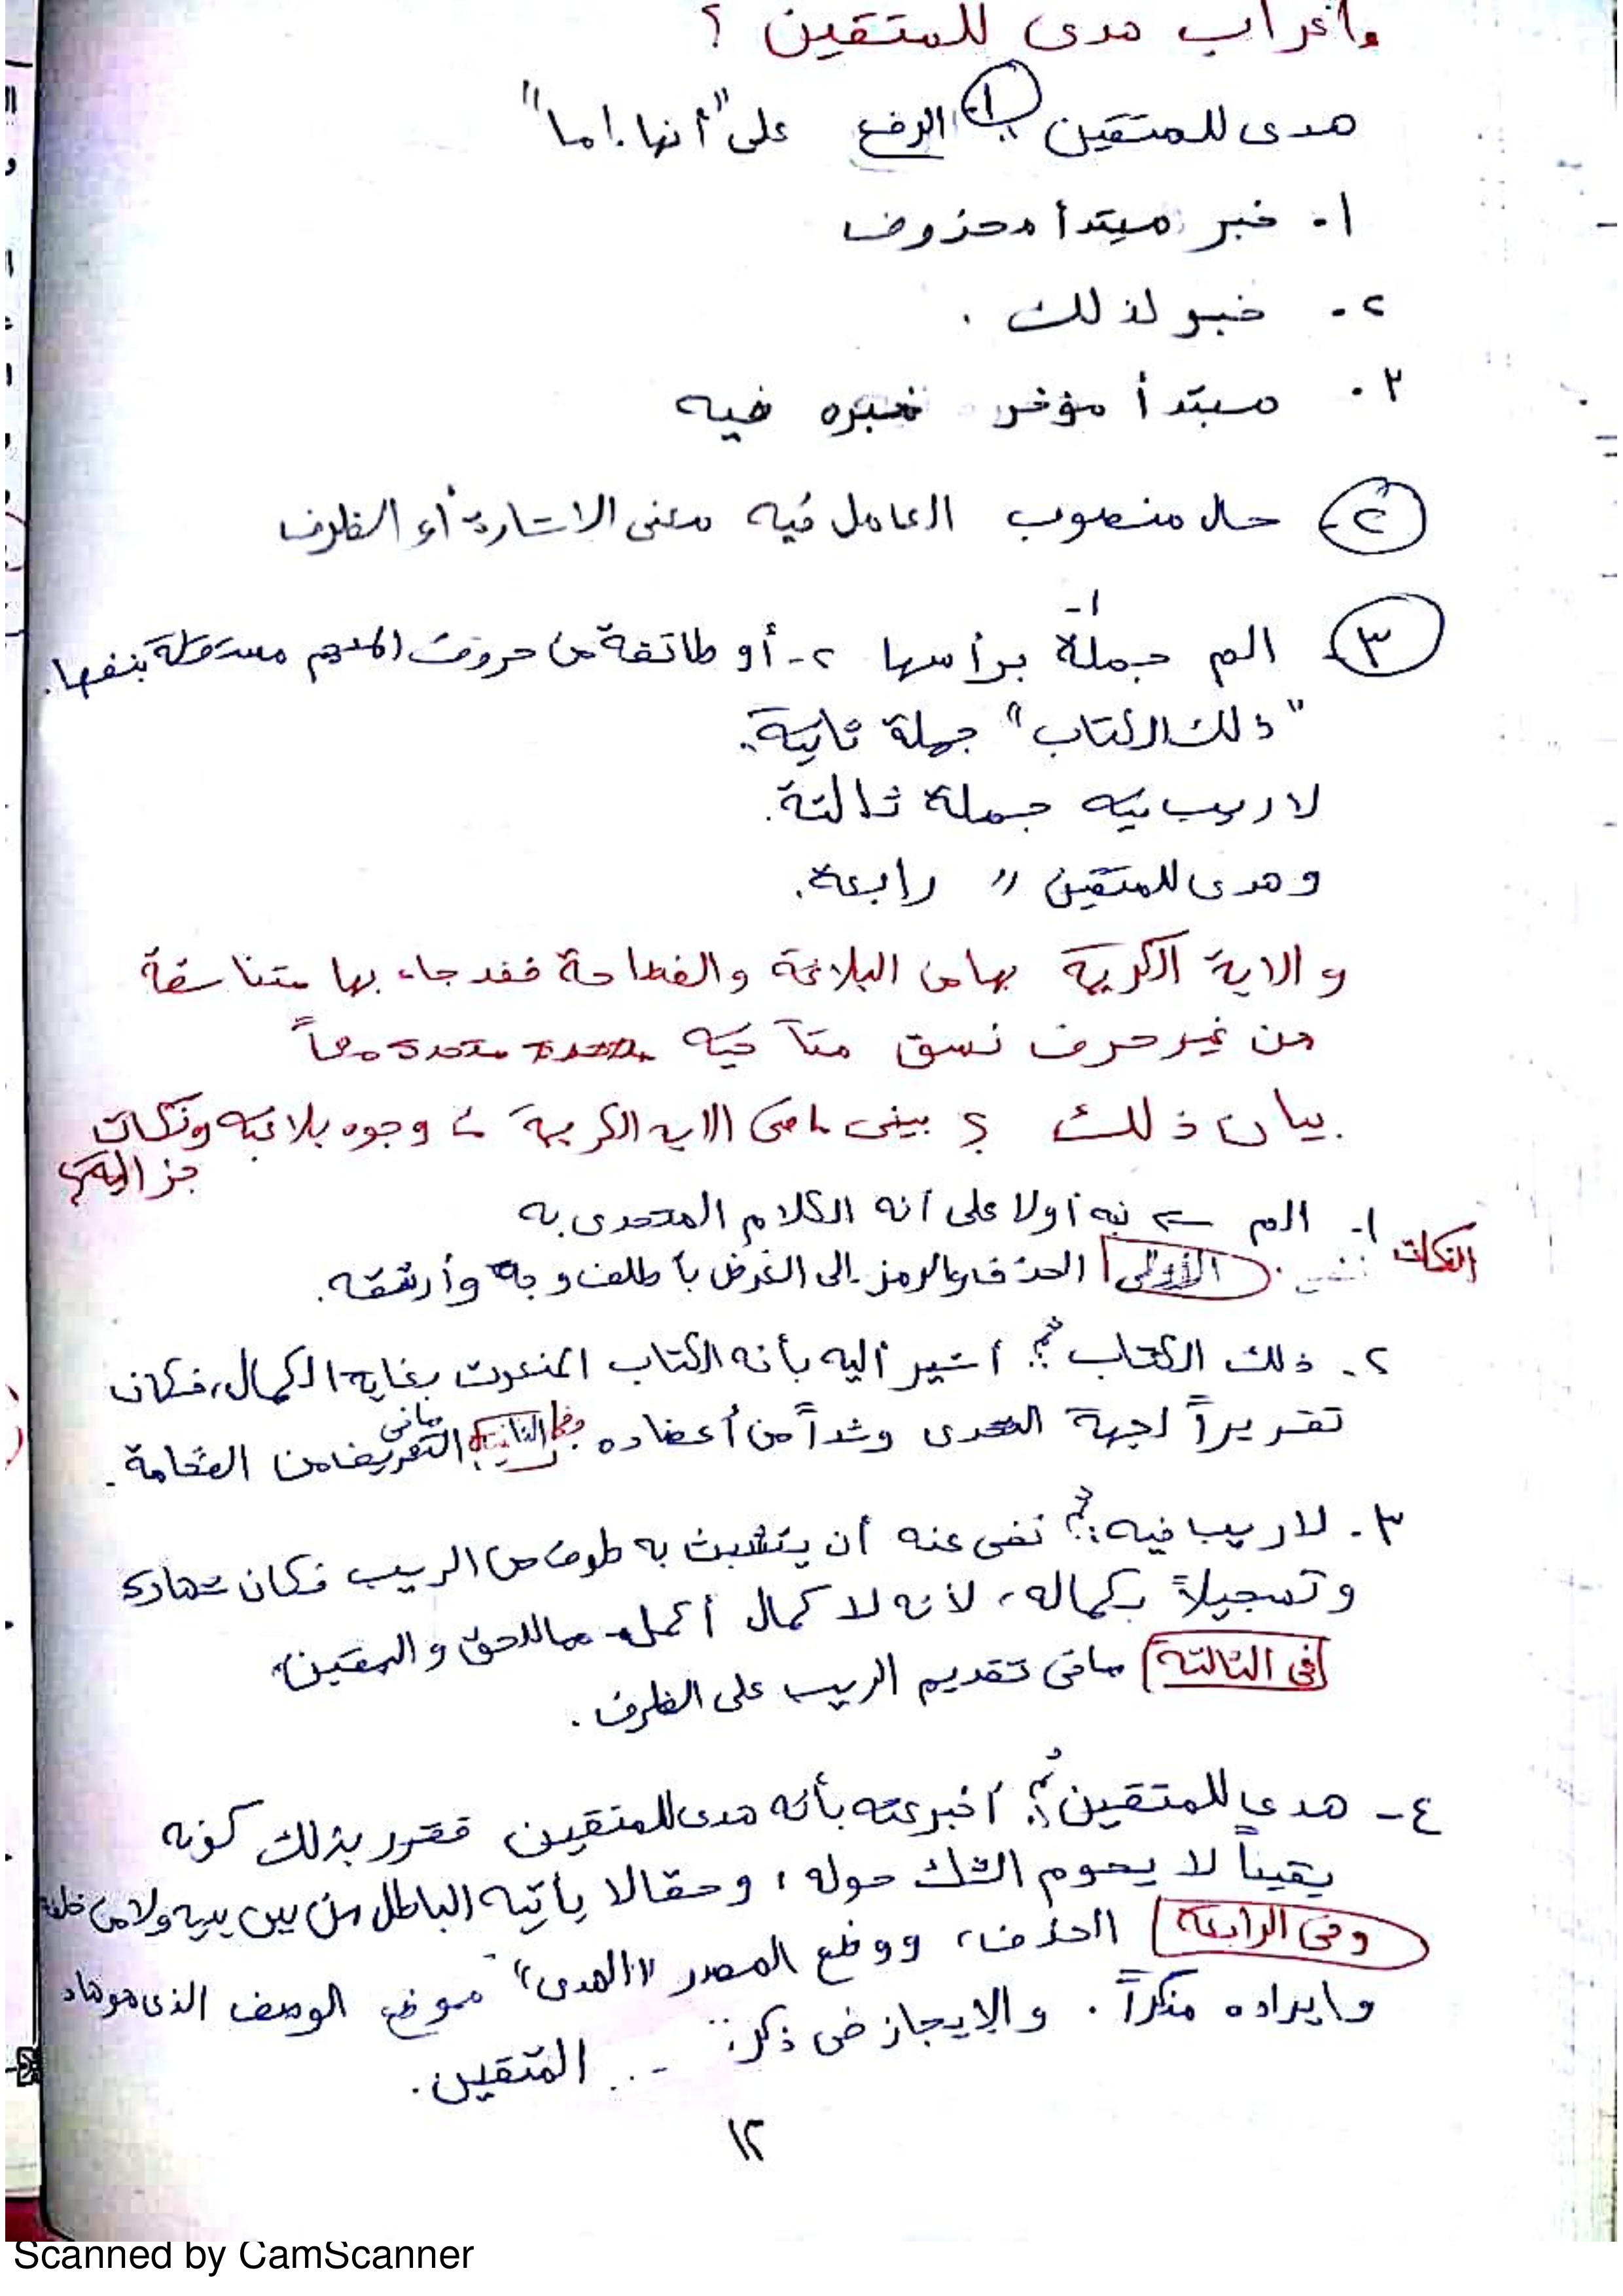 واعراب هدى للمتقين ؟
هدى للمتقين ١- الرفع على "أنها إما"
١. خبر مبتدأ محذوف
٢. خبر لذلك .
٣. مبتدأ مؤخر خبره فيه
٢- حال منصوب العامل فيه معنى الاشارة أو الظرف
٣- الم ١- جملة برأسها ٢- أو طائفة من حروف المعجم مستقلة بنفسها.
"ذلك الكتاب" جملة ثانية.
لا ريب فيه جملة ثالثة.
وهدى للمتقين " رابعة.
والاية الكريمة بها من البلاغة والفصاحة فقد جاء بها متناسقة
من غير حرف نسق متآخيه
بيان ذلك ؟ بينى ما فى الايه الكريمة من وجوه بلاغيه ونكات
جزاليه؟
النكات ١- الم ← نبه أولا على أنه الكلام المتحدى به
الأولى الحذف والرمز إلى الغرض بألطف وجه وأرشقه.
٢. ذلك الكتاب ؟ أشير إليه بأنه الكتاب المنعوت بغاية الكمال، فكان
تقريراً لجهة التحدى وشداً من أعضاده وفى الثانية مافى التعريف من الفخامة.
٣. لا ريب فيه: نفى عنه أن يتشبث به طرف من الريب فكان شهادة
وتسجيلاً بكماله، لأنه لا كمال أكمل مما للحق واليقين.
فى الثالثة مافى تقديم الريب على الظرف.
٤- هدى للمتقين ؟ أخبر عنه بأنه هدى للمتقين فقرر بذلك كونه
يقيناً لا يحوم الشك حوله، وحقا لا يأتيه الباطل من بين يديه ولا من خلفه
وفى الرابعة الحذف، ووضع المصدر "الهدى" موضع الوصف الذى هو هاد
وايراده منكراً. والإيجاز فى ذكر ... المتقين.
١٢
Scanned by CamScanner